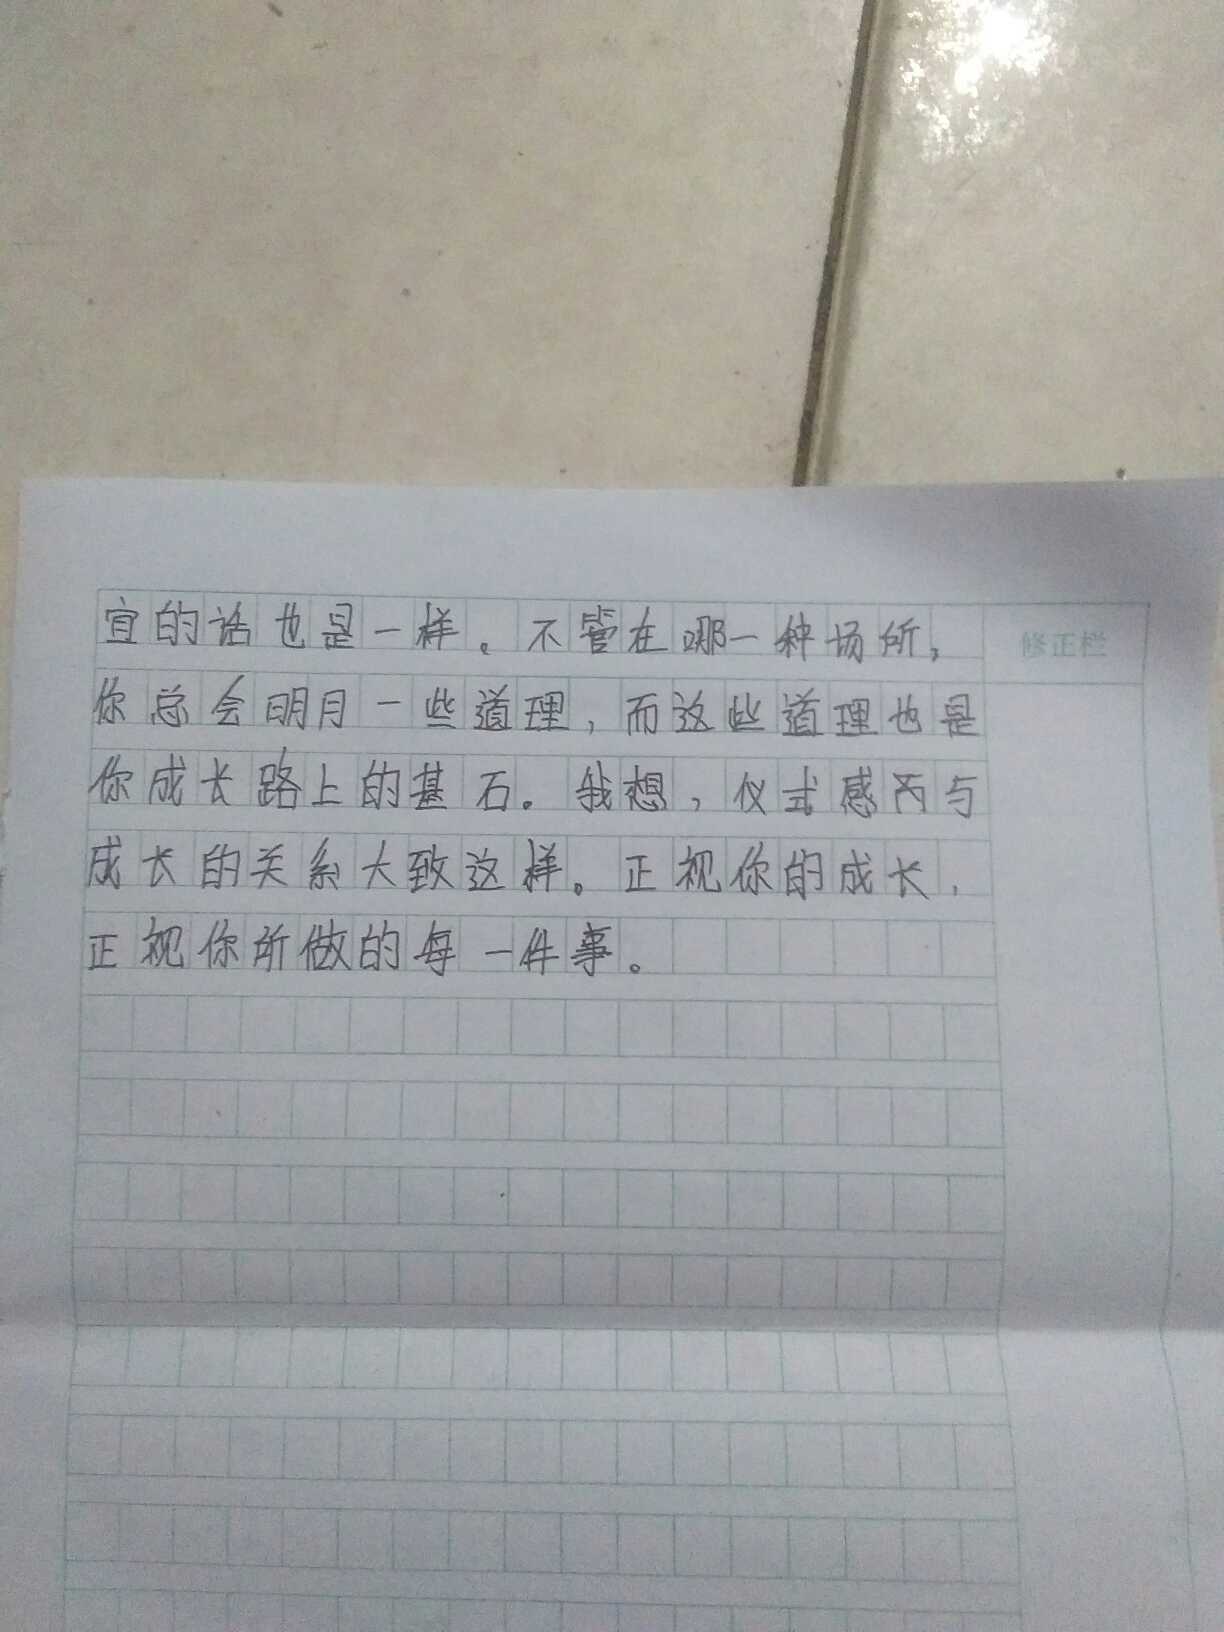 宜的话也是一样。不管在哪一种场所，
修正栏
你总会明月一些道理，而这些道理也是
你成长路上的基石。我想，仪式感丙与
成长的关系大致这样。正视你的成长，
正视你所做的每一件事。